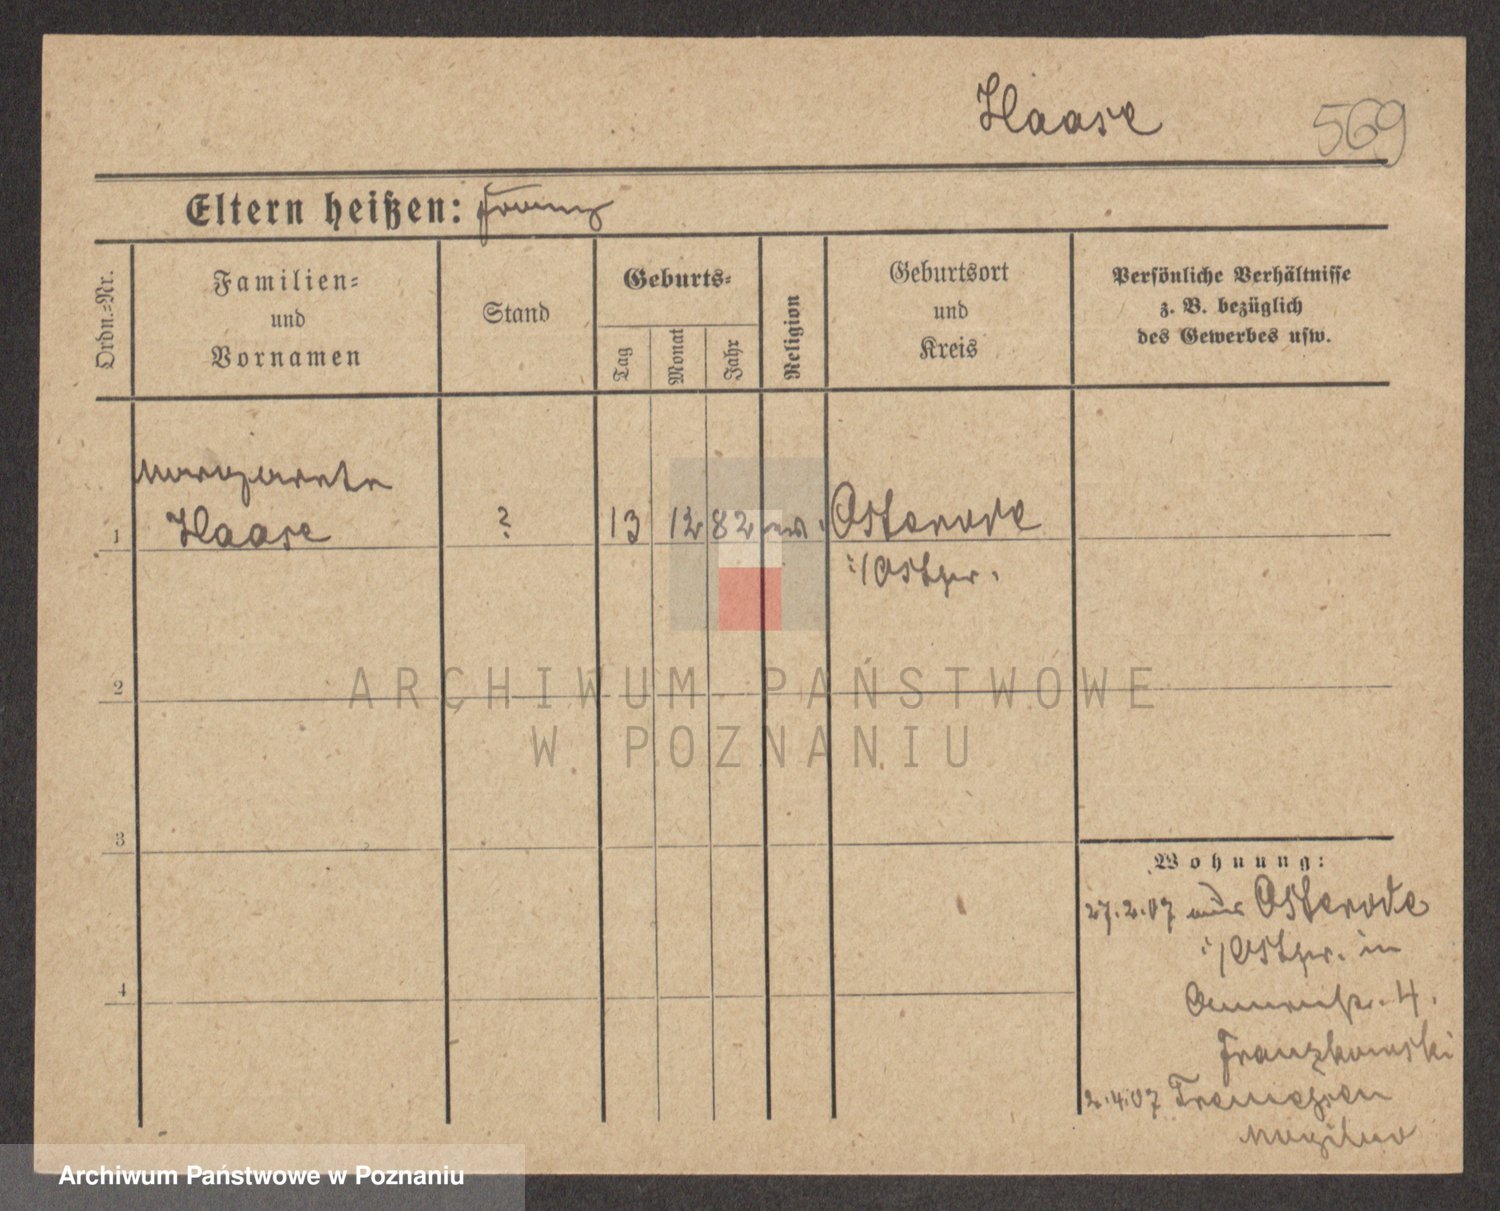 Haase 569
Eltern heißen: Franz
Ordn.-Nr.
Familien-
und
Vornamen
Stand
Geburts-
Tag
Monat
Jahr
Religion
Geburtsort
und
Kreis
Persönliche Verhältnisse
z. B. bezüglich
des Gewerbes usw.
Margarete
1 Haase ? 13 12 82 ev. Osterode
i/Ostpr.
2
ARCHIWUM PAŃSTWOWE
W POZNANIU
3
Wohnung:
27.2.07 aus Osterode
i/Ostpr. in
4
4.
Franzkowski
2.4.07 Tremessen
Mogilno
Archiwum Państwowe w Poznaniu